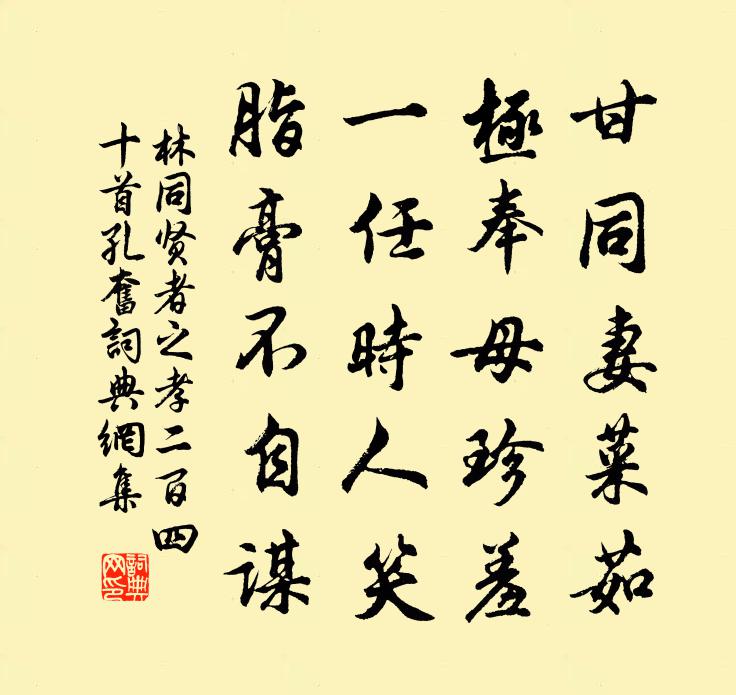 甘同妻菜茹
極奉母珍羞
一任時人笑
脂膏不自謀
林同贤者之孝二百四
十首孔奮詞典網集
詞典
网印